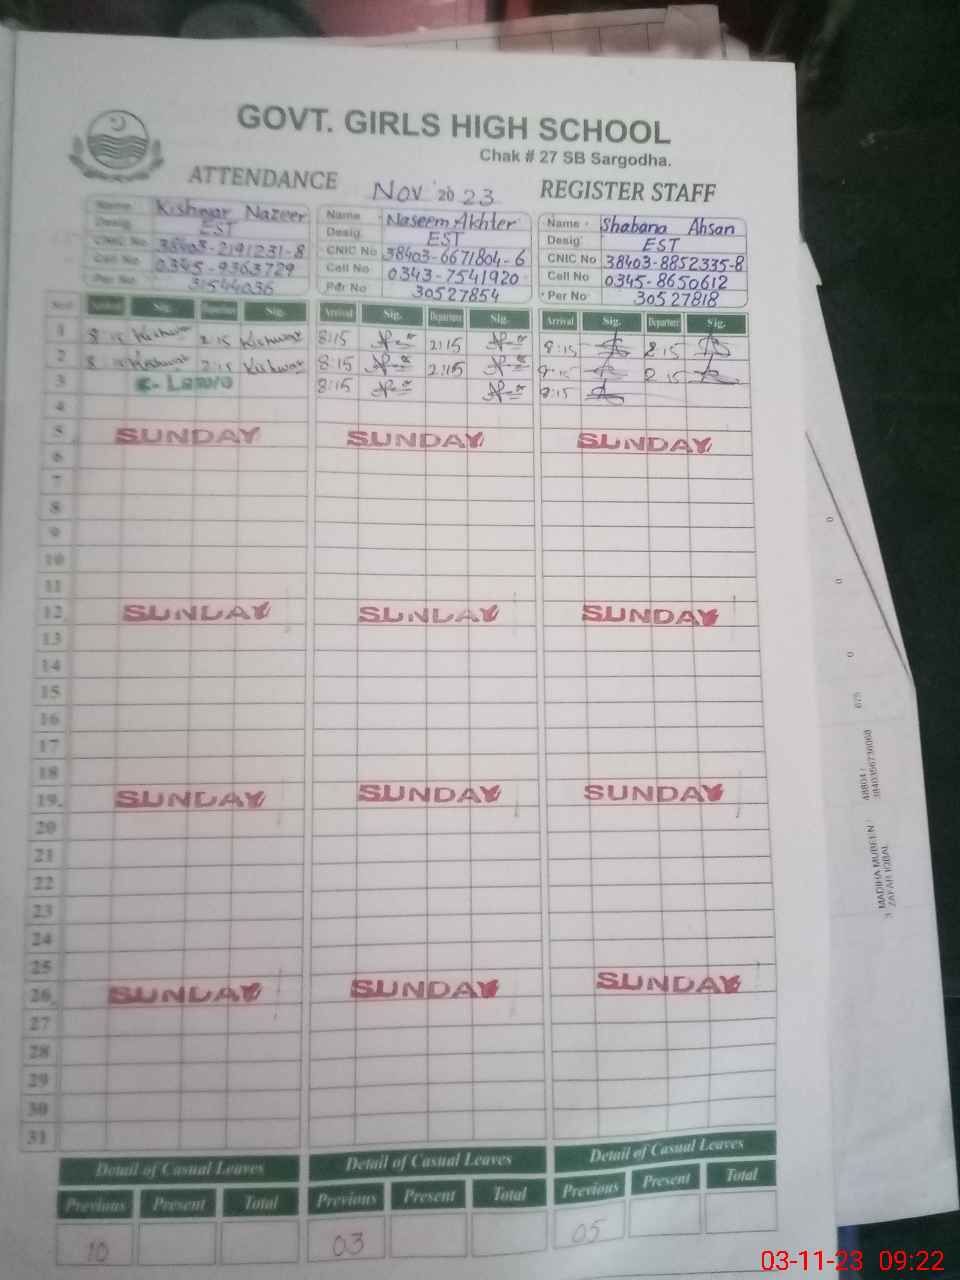 GOVT. GIRLS HIGH SCHOOL
Chak # 27 SB Sargodha.
ATTENDANCE Nov 2023 REGISTER STAFF
Name Kishwar Nazeer
Desig EST
CNIC No 38403-2191231-8
Cell No 0345-9363729
Per No 31544036
Name Naseem Akhter
Desig EST
CNIC No 38403-6671804-6
Cell No 0343-7541920
Per No 30527854
Name Shabana Ahsan
Desig EST
CNIC No 38403-8852335-8
Cell No 0345-8650612
Per No 30527818
Arrival Sig. Departure Sig. Arrival Sig. Departure Sig. Arrival Sig. Departure Sig.
1 8:15 Kishwar 2:15 Kishwar 8:15 2:15 8:15 2:15
2 8:15 Kishwar 2:15 Kishwar 8:15 2:15 8:15 2:15
3 8:15 8:15
4
5 SUNDAY SUNDAY SUNDAY
6
7
8
9
10
11
12 SUNDAY SUNDAY SUNDAY
13
14
15
16
17
18
19 SUNDAY SUNDAY SUNDAY
20
21
22
23
24
25
26 SUNDAY SUNDAY SUNDAY
27
28
29
30
31
Detail of Casual Leaves Detail of Casual Leaves Detail of Casual Leaves
Previous Present Total Previous Present Total Previous Present Total
10 03 05
3 MADIHA MUBEEN
ZAFAR IQBAL
03-11-23 09:22